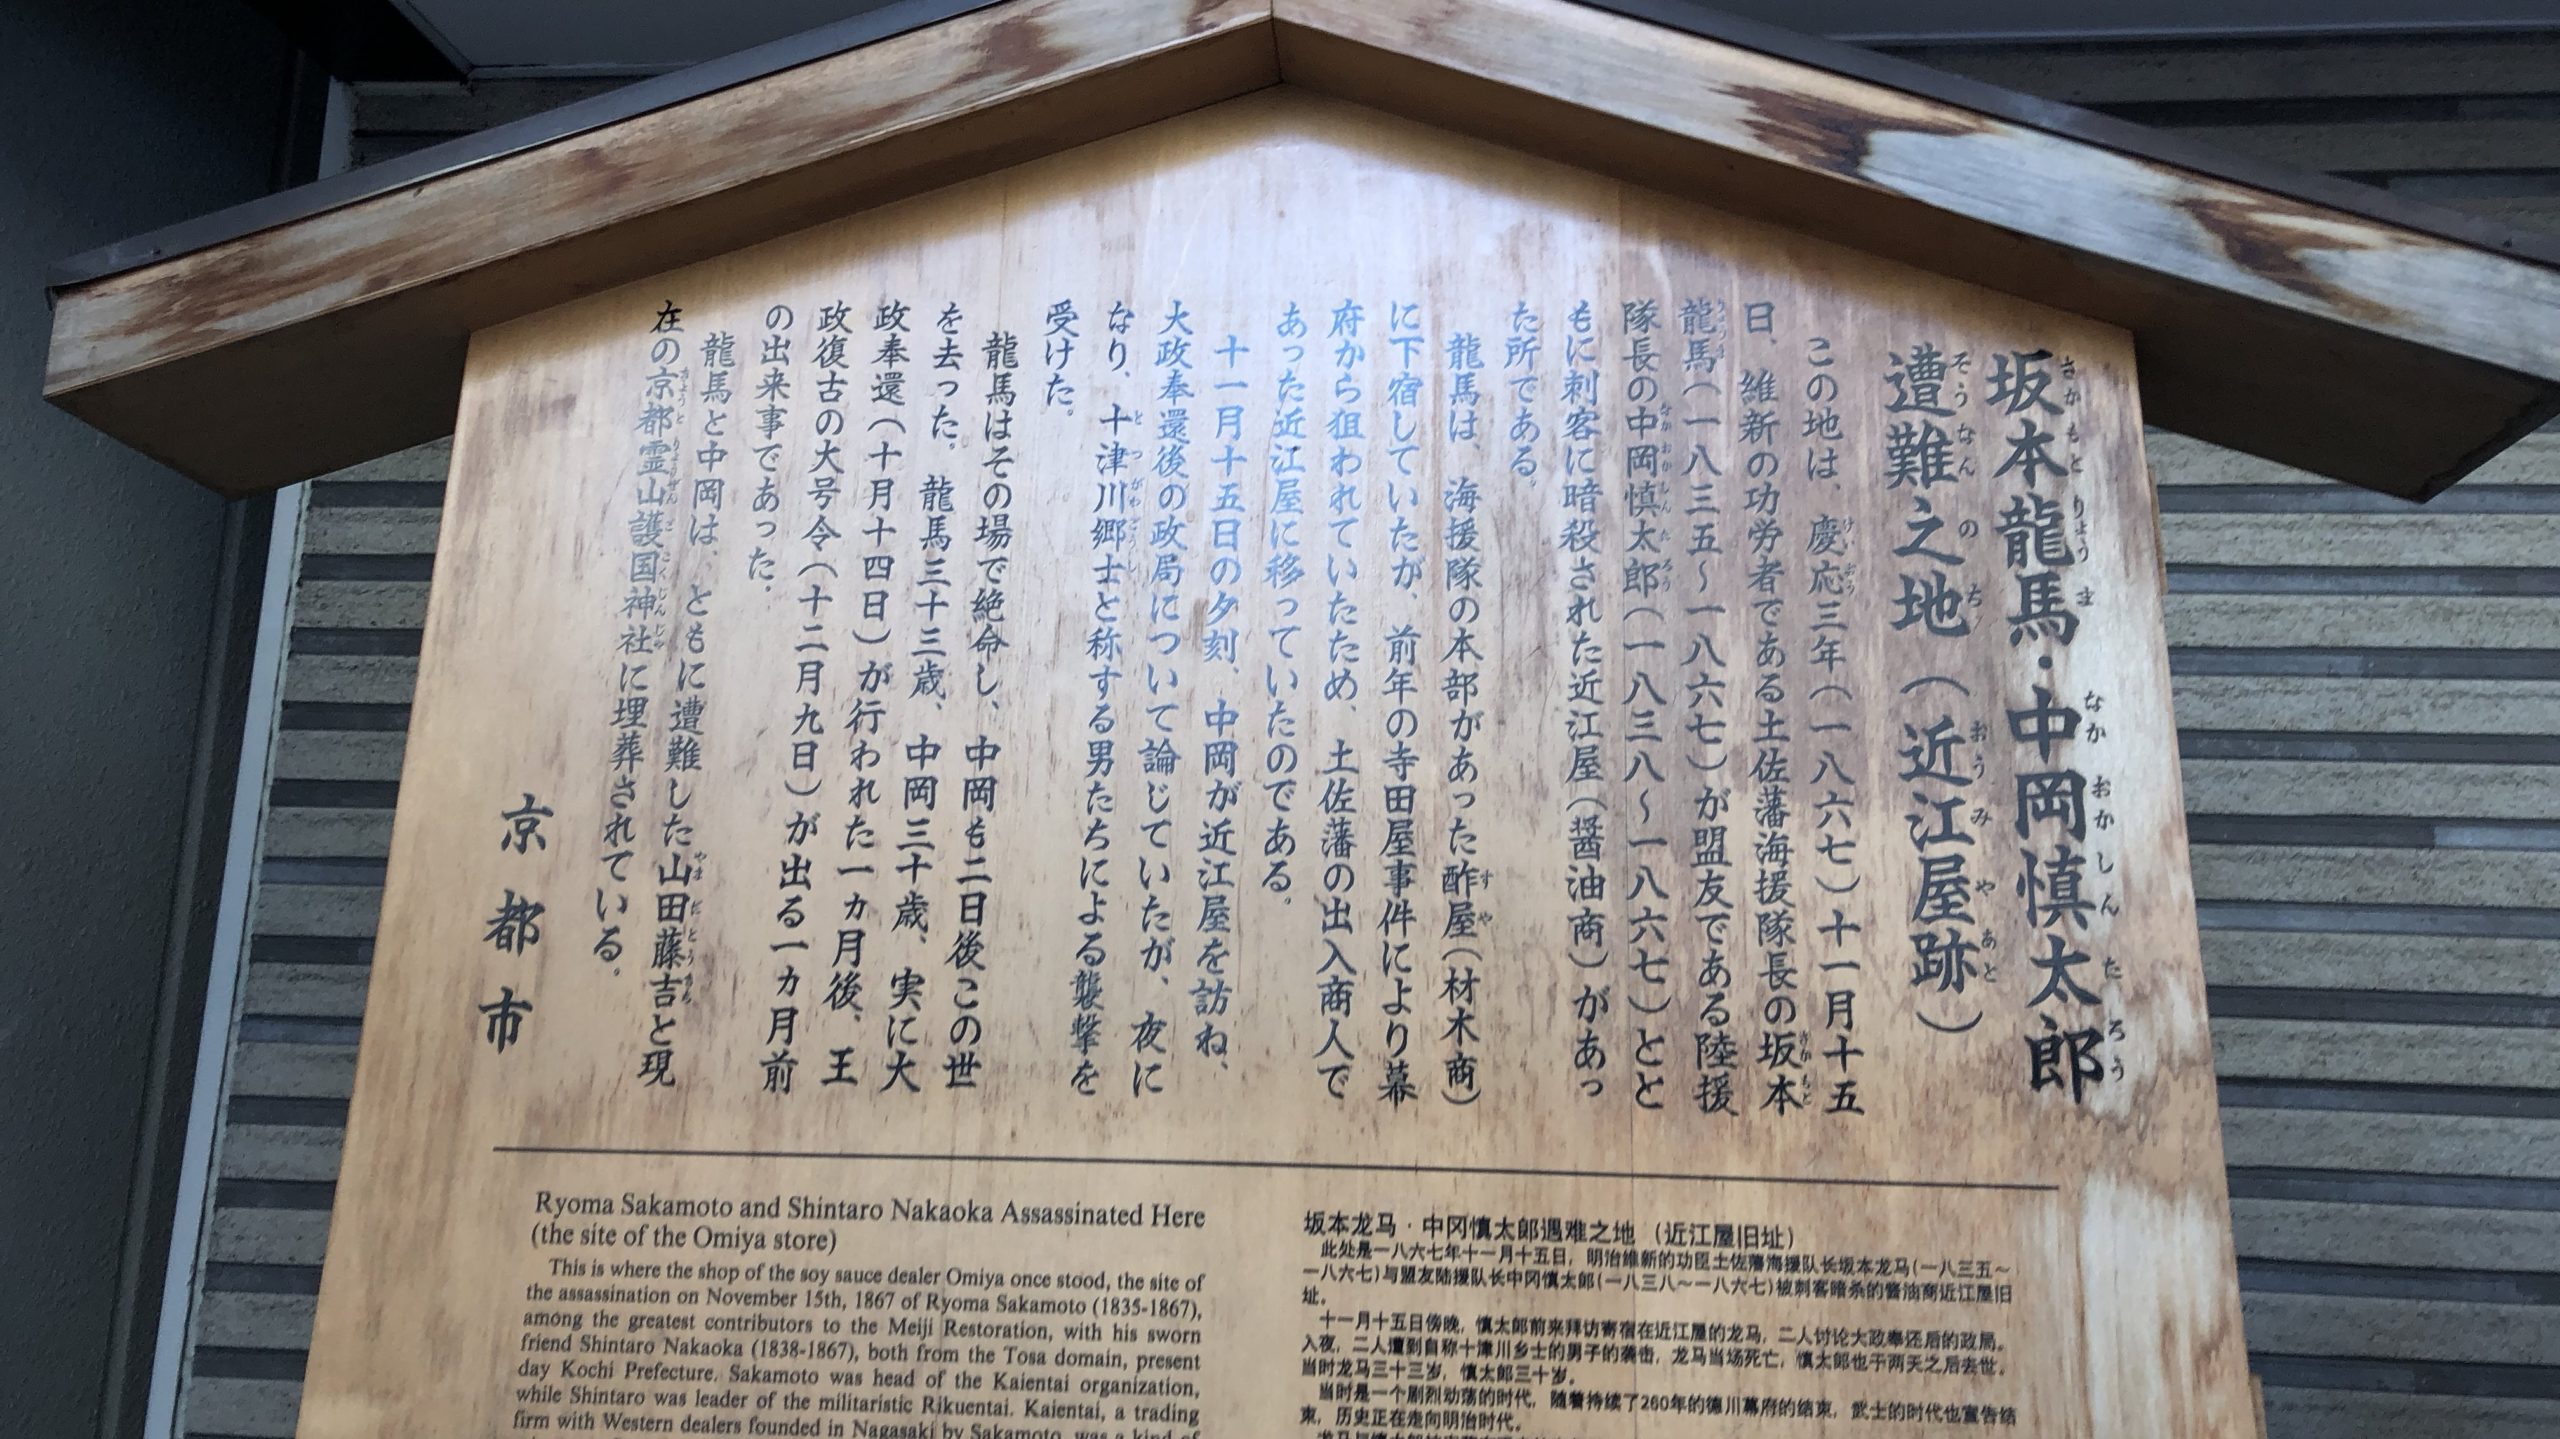 坂本龍馬・中岡慎太郎
遭難之地（近江屋跡）
この地は、慶応三年（一八六七）十一月十五
日、維新の功労者である土佐藩海援隊長の坂本
龍馬（一八三五〜一八六七）が盟友である陸援
隊長の中岡慎太郎（一八三八〜一八六七）とと
もに刺客に暗殺された近江屋（醤油商）があっ
た所である。
龍馬は、海援隊の本部があった酢屋（材木商）
に下宿していたが、前年の寺田屋事件により幕
府から狙われていたため、土佐藩の出入商人で
あった近江屋に移っていたのである。
十一月十五日の夕刻、中岡が近江屋を訪ね、
大政奉還後の政局について論じていたが、夜に
なり、十津川郷士と称する男たちによる襲撃を
受けた。
龍馬はその場で絶命し、中岡も二日後この世
を去った。龍馬三十三歳、中岡三十歳、実に大
政奉還（十月十四日）が行われた一ヵ月後、王
政復古の大号令（十二月九日）が出る一ヵ月前
の出来事であった。
龍馬と中岡は、ともに遭難した山田藤吉と現
在の京都霊山護国神社に埋葬されている。
京都市
Ryoma Sakamoto and Shintaro Nakaoka Assassinated Here
(the site of the Omiya store)
This is where the shop of the soy sauce dealer Omiya once stood, the site of
the assassination on November 15th, 1867 of Ryoma Sakamoto (1835-1867),
among the greatest contributors to the Meiji Restoration, with his sworn
friend Shintaro Nakaoka (1838-1867), both from the Tosa domain, present
day Kochi Prefecture. Sakamoto was head of the Kaientai organization,
while Shintaro was leader of the militaristic Rikuentai. Kaientai, a trading
firm with Western dealers founded in Nagasaki by Sakamoto, was a kind of
坂本龙马・中冈慎太郎遇难之地（近江屋旧址）
此处是一八六七年十一月十五日，明治维新的功臣土佐藩海援队长坂本龙马(一八三五～
一八六七)与盟友陆援队长中冈慎太郎(一八三八～一八六七)被刺客暗杀的酱油商近江屋旧
址。
十一月十五日傍晚，慎太郎前来拜访寄宿在近江屋的龙马，二人讨论大政奉还后的政局。
入夜，二人遭到自称十津川乡士的男子的袭击，龙马当场死亡，慎太郎也于两天之后去世。
当时龙马三十三岁，慎太郎三十岁。
当时是一个剧烈动荡的时代，随着持续了260年的德川幕府的结束，武士的时代也宣告结
束，历史正在走向明治时代。